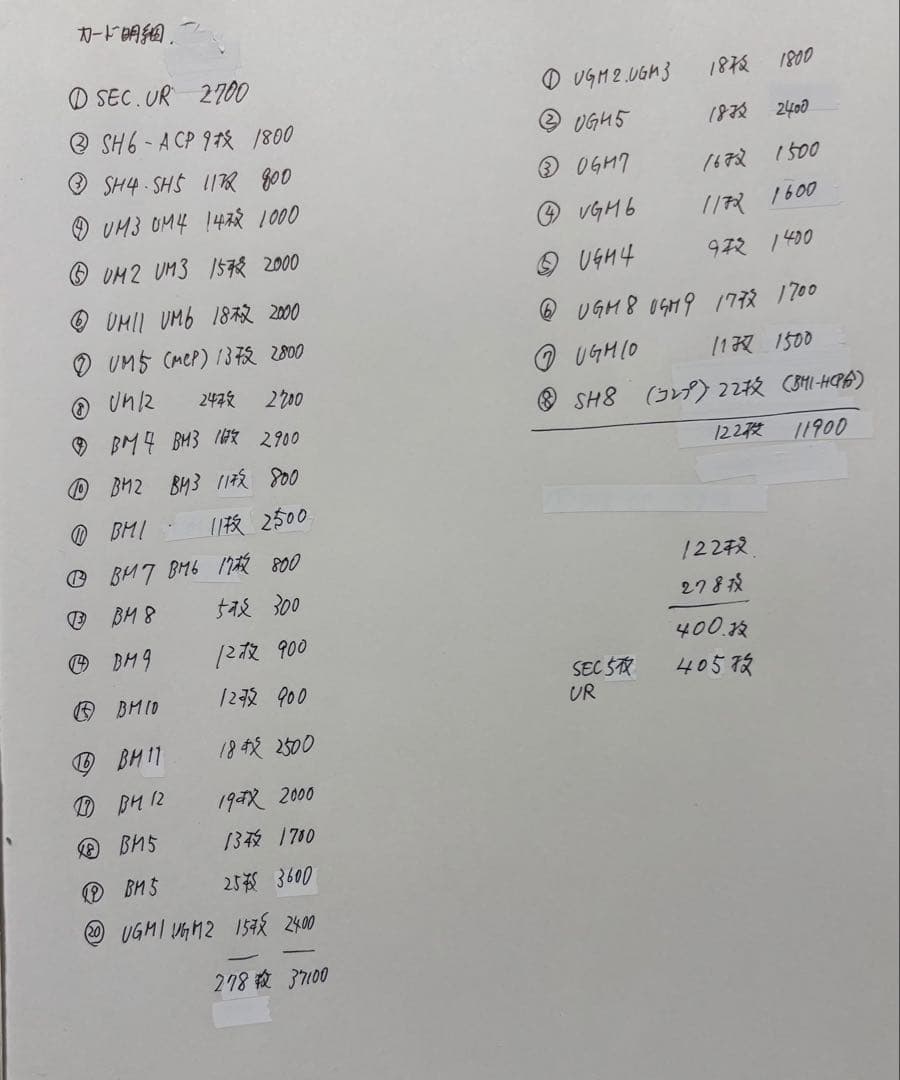 カード明細
① SEC.UR 2700
② SH6-ACP 9枚 1800
③ SH4.SH5 11枚 800
④ UM3 UM4 14枚 1000
⑤ UM2 UM3 15枚 2000
⑥ UM11 UM6 18枚 2000
⑦ UM5 (MCP) 13枚 2800
⑧ UM12 24枚 2700
⑨ BM4 BM3 枚 2900
⑩ BM2 BM3 11枚 800
⑪ BM1 11枚 2500
⑫ BM7 BM6 17枚 800
⑬ BM8 5枚 300
⑭ BM9 12枚 900
⑮ BM10 12枚 900
⑯ BM11 18枚 2500
⑰ BM12 19枚 2000
⑱ BM5 13枚 1700
⑲ BM5 25枚 3600
⑳ UGM1 UGM2 15枚 2400
278枚 37100
① UGM2.UGM3 18枚 1800
② UGM5 18枚 2400
③ UGM7 16枚 1500
④ UGM6 11枚 1600
⑤ UGM4 9枚 1400
⑥ UGM8 UGM9 17枚 1700
⑦ UGM10 11枚 1500
⑧ SH8 (コンプ) 22枚 (BM1-HCP分)
122枚 11900
122枚
278枚
400.枚
SEC 5枚 405枚
UR